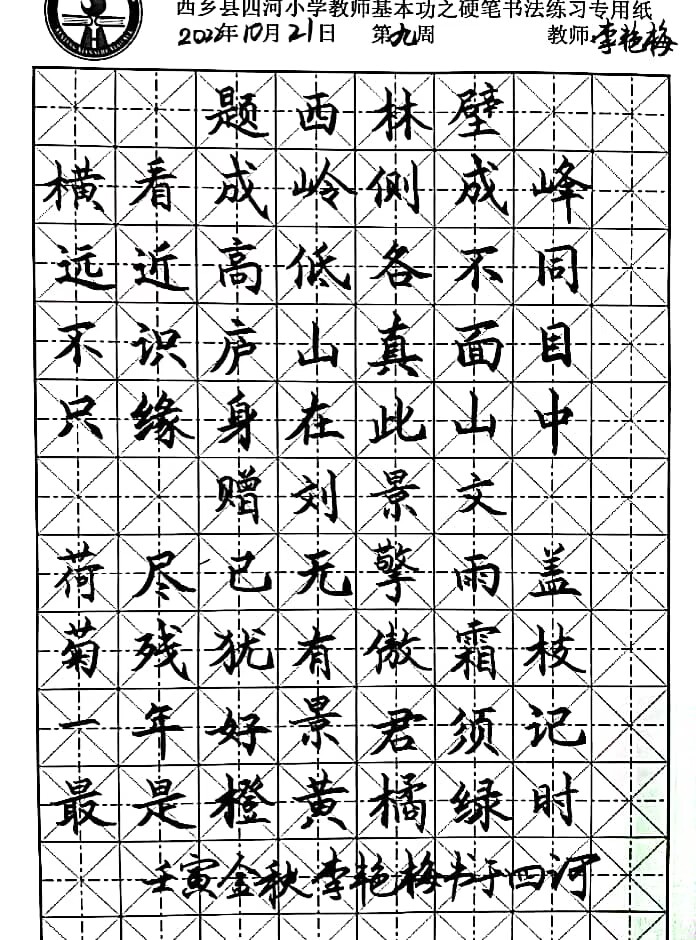 西乡县四河小学教师基本功之硬笔书法练习专用纸
2022年10月21日 第九周 教师:李艳梅
题西林壁
横看成岭侧成峰
远近高低各不同
不识庐山真面目
只缘身在此山中
赠刘景文
荷尽已无擎雨盖
菊残犹有傲霜枝
一年好景君须记
最是橙黄橘绿时
壬寅金秋李艳梅书于四河